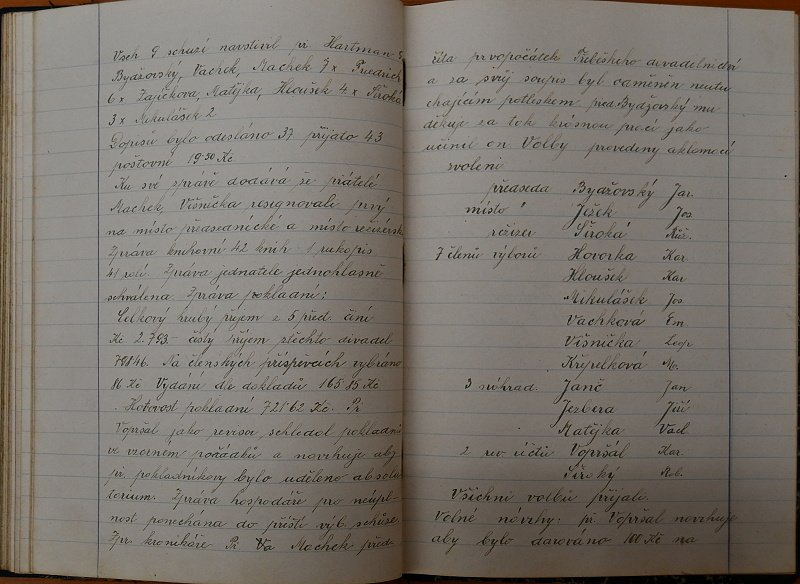 Všech 9 schůzí navštívil př. Hartman S
Bydžovský, Vachek, Machek 7x Friedrich
6x Zajíčkova, Matýka, Hloušek 4x Široká
3x Mikulášek 2
Dopisů bylo odesláno 37 přijato 43
poštovní 19·50 Kč
Ku své zprávě dodává že přátelé
Machek, Višnička resignovali prvý
na místo předsednické a místo režisérské
Zpráva knihovní 42 knih 1 rukopis
41 rolí Zpráva jednatele jednohlasně
schválena Zpráva pokladní:
Celkový hrubý příjem z 5 před. činí
Kč 2.793·- čistý příjem z těchto divadel
798·46. Na členských příspěvcích vybráno
86 Kč Vydání dle dokladů 165·85 Kč
Hotovost pokladní 721·62 Kč. Př
Vopršal jako revisor schledal pokladnu
ve vzorném pořádku a navrhuje aby
př. pokladníkovy bylo uděleno absolu
torium. Zpráva hospodáře pro neúpl-
nost ponechána do příští výb. schůze.
Zpr. kronikáře Př. Va Machek před-
říta prvopočátek Třebešského divadelnictví
a za svůj soupis byl odměněn neutu
chajícím potleskem před. Bydžovský mu
děkuje za tak krásnou práci jako
učinil on. Volby provedeny aklamací
zvoleni
předseda Bydžovský Jar.
místo " Ježek Jos
režizer Široká Růž.
7 členů výborů Hovorka Kar
Hloušek Kar
Mikulášek Jos
Vachková Em.
Višnička Leop
Křepelková M.
3 náhrad. Janč Jan
Jerbera Jiří
Matýka Vacl.
2 rev. účtů Vopršal Kar.
Široký Rob.
Všichni volbu přijali.
Volné návrhy: př. Vopršal navrhuje
aby bylo darováno 100 Kč na